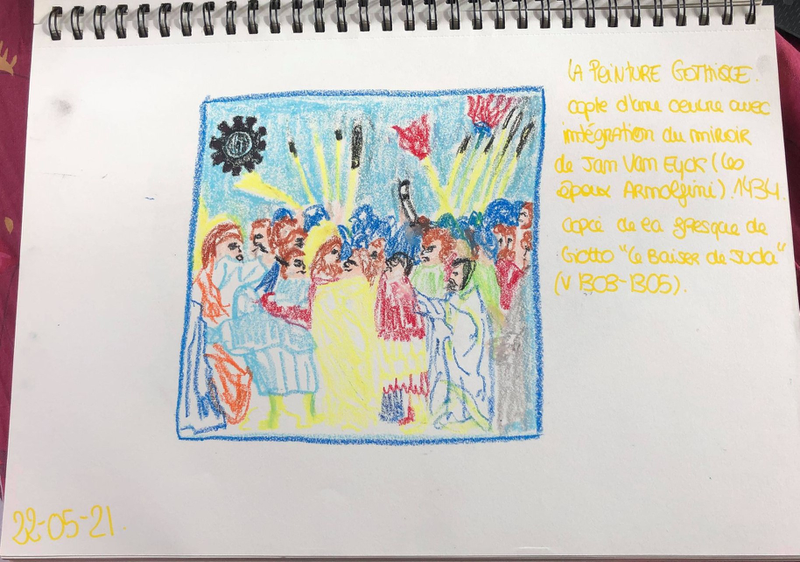 LA PEINTURE GOTHIQUE.
copie d'une oeuvre avec
intégration du miroir
de Jan Van Eyck (les
époux Arnolfini). 1434.
copie de la fresque de
Giotto "le Baiser de Juda"
(V 1303-1305).
22-05-21.